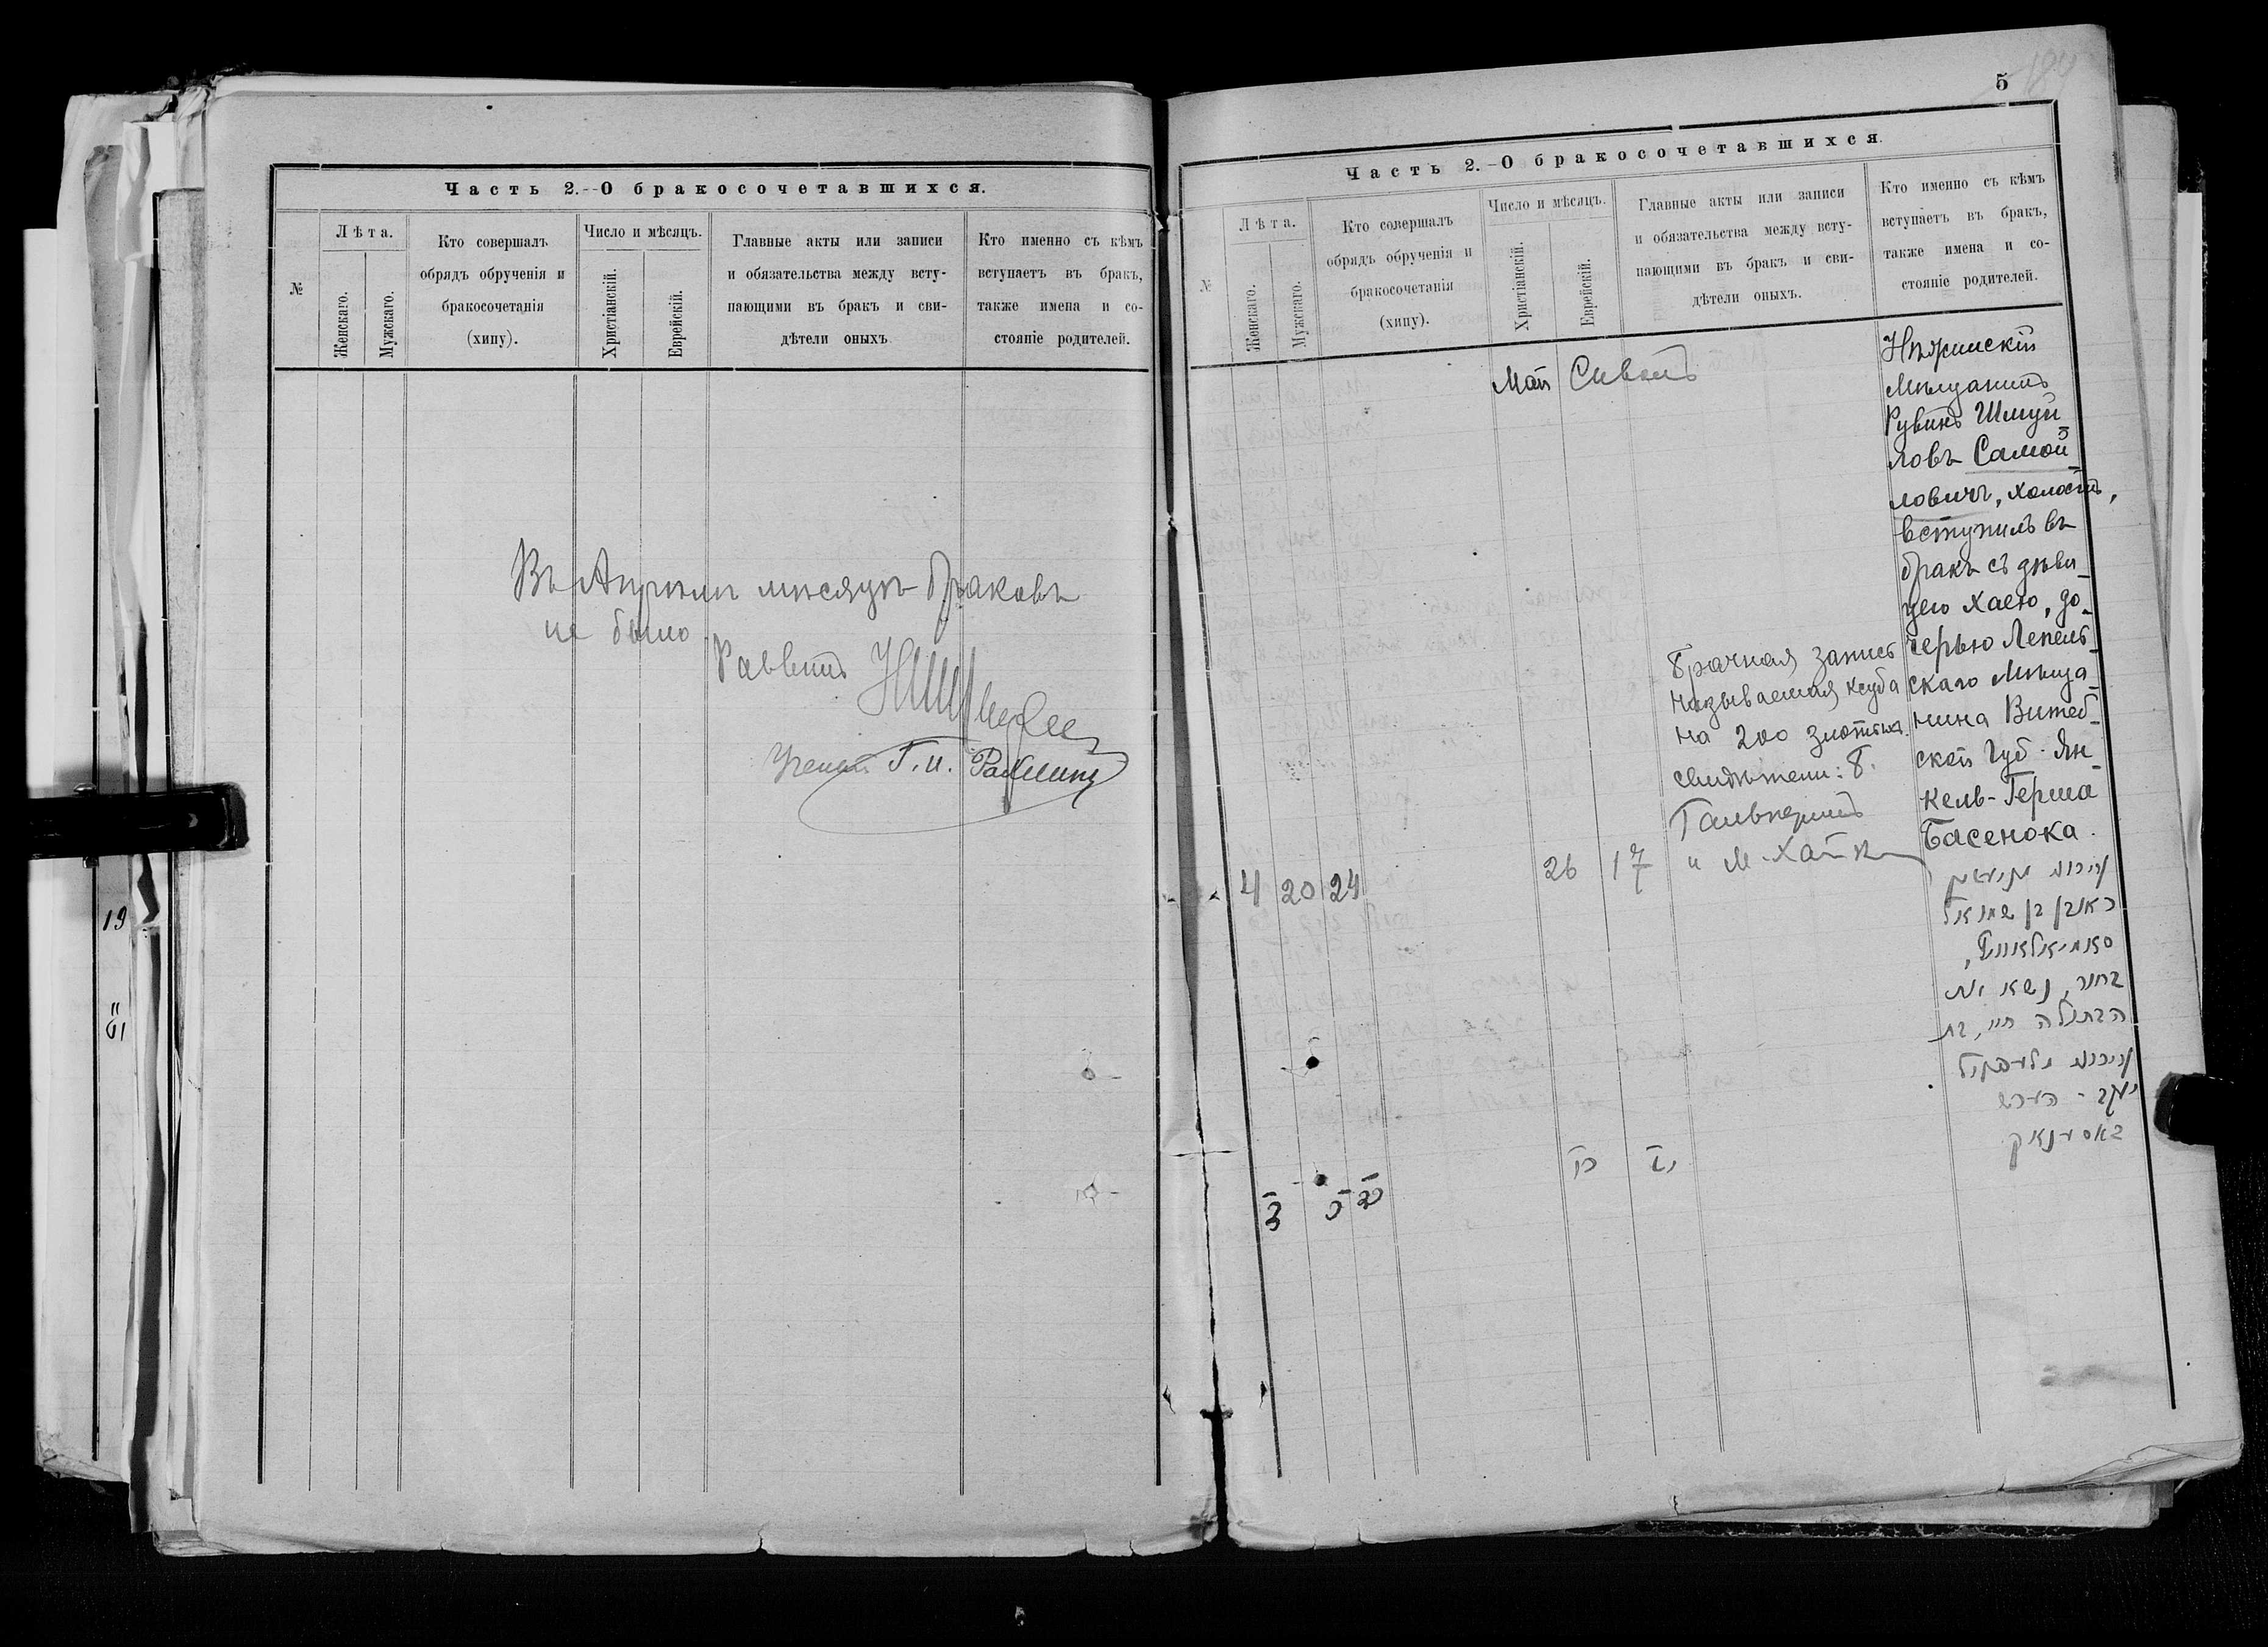 Часть 2.--О бракосочетавшихся.
№
Лѣта.
Женскаго.
Мужскаго.
Кто совершалъ
обрядъ обрученія и
бракосочетанія
(хипу).
Число и мѣсяцъ.
Христіанскій.
Еврейскій.
Главные акты или записи
и обязательства между всту-
пающими въ бракъ и сви-
дѣтели оныхъ.
Кто именно съ кѣмъ
вступаетъ въ бракъ,
также имена и со-
стояніе родителей.
Въ Апрѣлѣ мѣсяцѣ браковъ
не было.
Раввинъ
Ученый Г. И. Рахлинъ
19
5
184
Часть 2.-О бракосочетавшихся.
№
Лѣта.
Женскаго.
Мужскаго.
Кто совершалъ
обрядъ обрученія и
бракосочетанія
(хипу).
Число и мѣсяцъ.
Христіанскій.
Еврейскій.
Главные акты или записи
и обязательства между всту-
пающими въ бракъ и сви-
дѣтели оныхъ.
Кто именно съ кѣмъ
вступаетъ въ бракъ,
также имена и со-
стояніе родителей.
4
20
24
Май
26
Сиванъ
17
Брачная запись
называемая ксуба
на 200 злотыхъ.
свидѣтели: Б.
Гальперинъ
и М. Хайки
Нѣжинскій
мѣщанинъ
Рувинъ Шмуй
ловъ Самой
ловичъ, холостъ,
вступилъ въ
бракъ съ дѣви-
цею Хаею, до-
черью Лепель-
скаго мѣща-
нина Витеб-
ской губ. Ян-
кель-Герша
Басенока.
ראובן בן שמואל
סאמיאלאוויץ,
בחור, נשא את
הבתולה חי', בת
יעקב - הערש
באסענאק